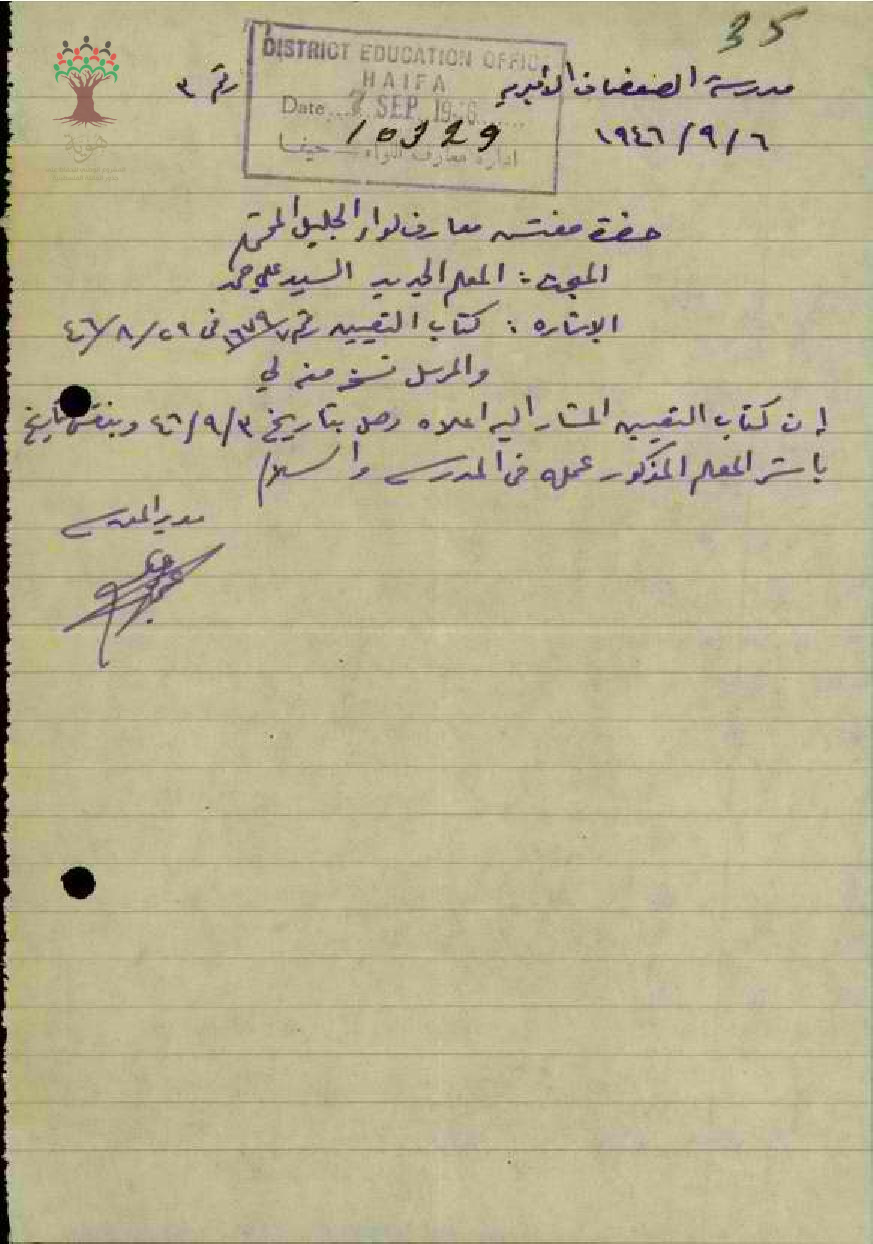 35
مدرسة الصفصاف الاميرية
رقم ٣
DISTRICT EDUCATION OFFICE
HAIFA
Date 7 SEP 1946
10329
ادارة معارف اللواء — حيفا
١٩٤٦/٩/٦
هوية
حضرة مفتش معارف لواء الجليل المحترم
المبحث: المعلم الجديد السيد علي حمد
الاشاره: كتاب التعيين رقم في ٤٦/٨/٢٩
والمرسل نسخة منه لي
إن كتاب التعيين المشار اليه اعلاه وصل بتاريخ ٤٦/٩/٣ وبنفس التاريخ
باشر المعلم المذكور عمله في المدرسة والسلام
مدير المدرسة